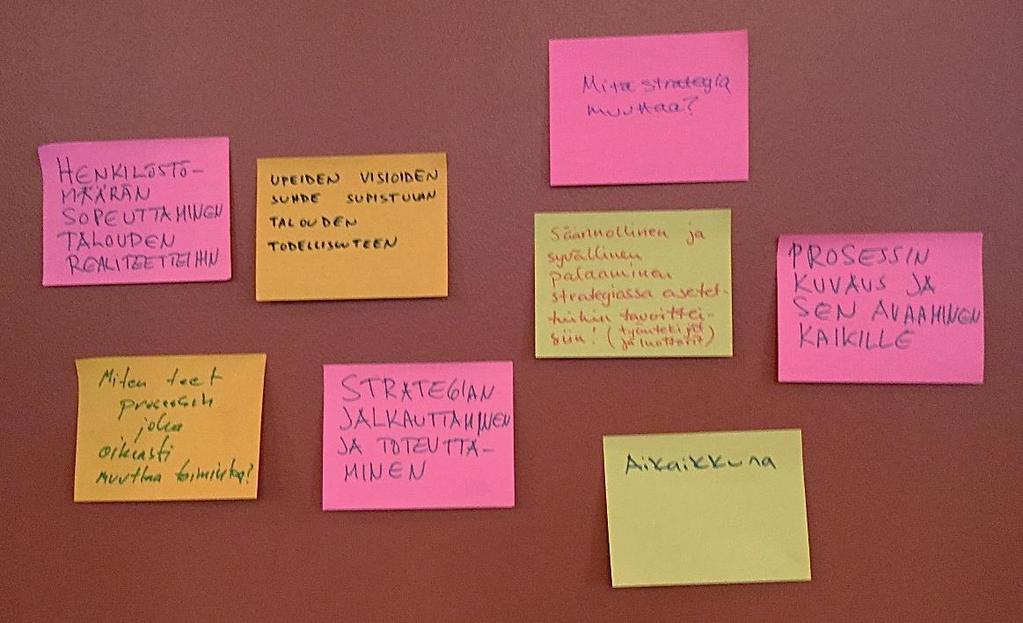 Mitä strategia
muuttaa?
HENKILÖSTÖ-
MÄÄRÄN
SOPEUTTAMINEN
TALOUDEN
REALITEETTEIHIN
UPEIDEN VISIOIDEN
SUHDE SUPISTUVAN
TALOUDEN
TODELLISUUTEEN
Säännollinen ja
syvällinen
palaaminen
strategiassa asetet-
tuihin tavoittei-
siin! (työntekijät
ja luottorit)
PROSESSIN
KUVAUS JA
SEN AVAAMINEN
KAIKILLE
Miten teet
prosessin
joka
oikeasti
muuttaa toimintaa?
STRATEGIAN
JALKAUTTAMINEN
JA TOTEUTTA-
MINEN
Aikaikkuna